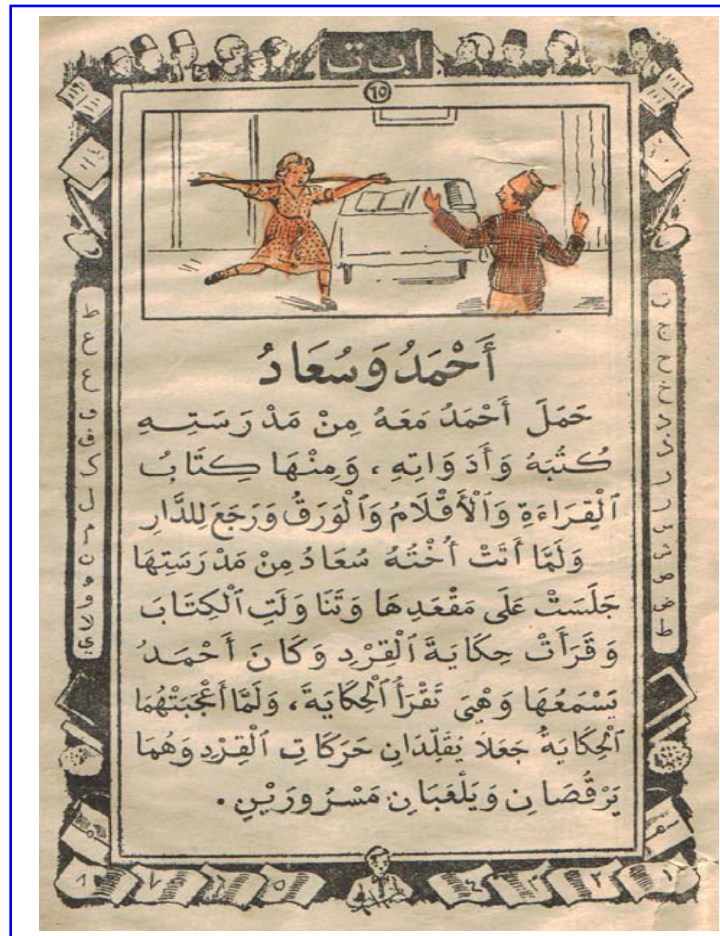 ا ب ت
٦٥
أَحْمَدُ وَسُعَادُ
حَمَلَ أَحْمَدُ مَعَهُ مِنْ مَدْرَسَتِهِ
كُتُبَهُ وَأَدَوَاتِهِ ، وَمِنْهَا كِتَابُ
ٱلْقِرَاءَةِ وَٱلْأَقْلَامُ وَٱلْوَرَقُ وَرَجَعَ لِلدَّارِ
وَلَمَّا أَتَتْ أُخْتُهُ سُعَادُ مِنْ مَدْرَسَتِهَا
جَلَسَتْ عَلَى مَقْعَدِهَا وَتَنَاوَلَتِ ٱلْكِتَابَ
وَقَرَأَتْ حِكَايَةَ ٱلْقِرْدِ وَكَانَ أَحْمَدُ
يَسْمَعُهَا وَهْىَ تَقْرَأُ ٱلْحِكَايَةَ ، وَلَمَّا أَعْجَبَتْهُمَا
ٱلْحِكَايَةُ جَعَلَا يُقَلِّدَانِ حَرَكَاتِ ٱلْقِرْدِ وَهُمَا
يَرْقُصَانِ وَيَلْعَبَانِ مَسْرُورَيْنِ .
١ ٢ ٣ ٤ ٥ ٦ ٧ ٨